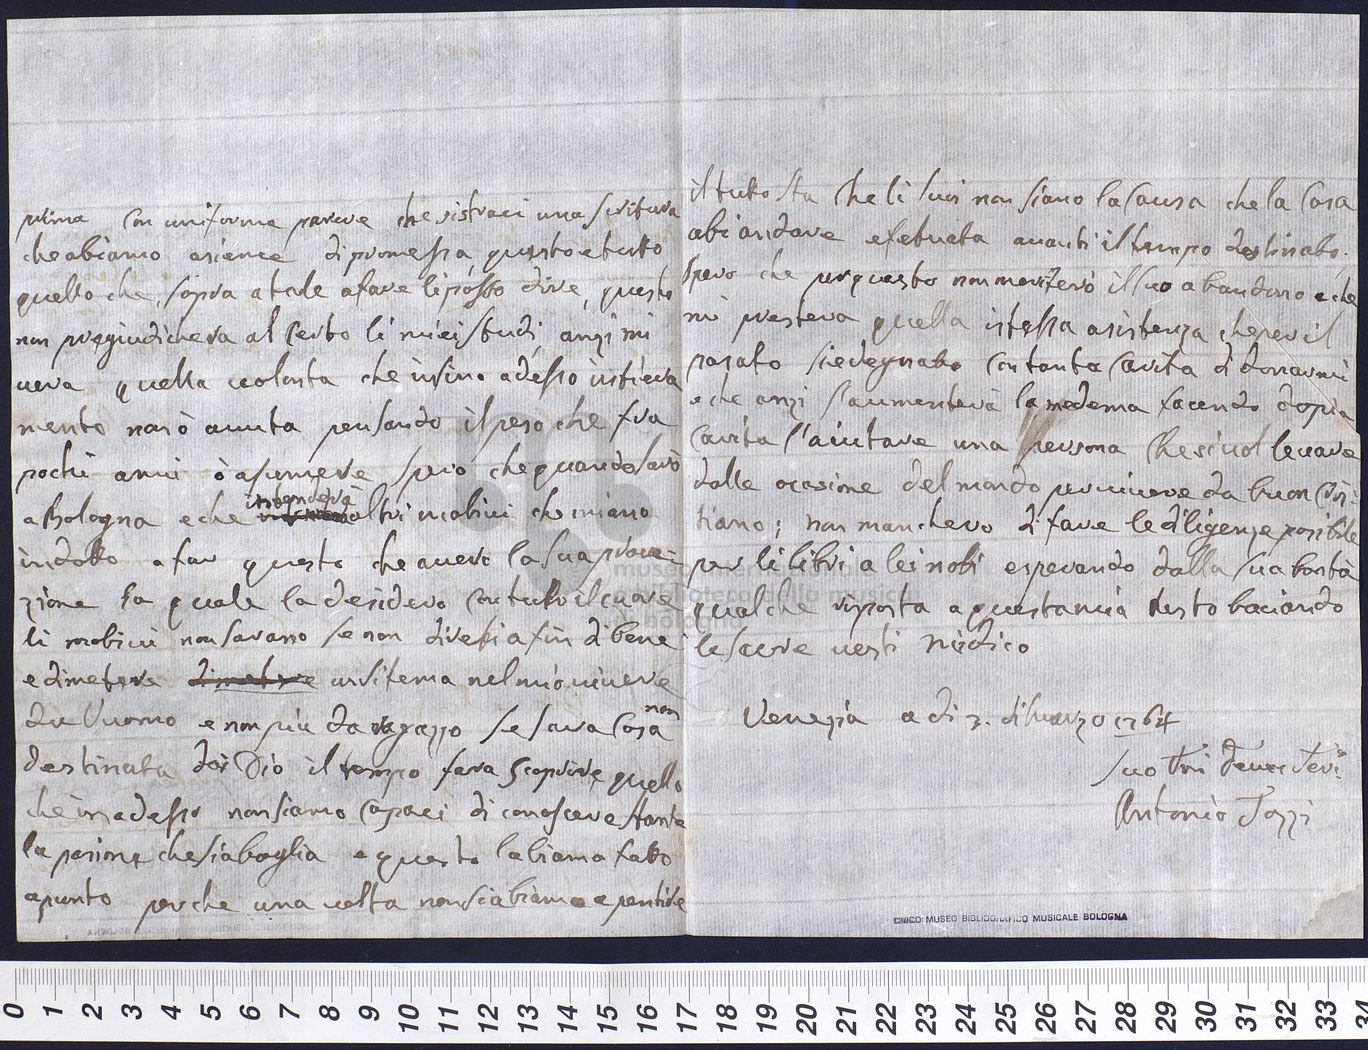 prima con uniforme parere che ristraci una scritura
che abiamo asieme di promessa, questo e tutto
quello che, sopra a tale afare li posso dire, questo
non pregiudichera al certo li miei studi anzi mi
vera quella volonta che insino adesso intiera
mento non ò auuta pensando il peso che fra
pochi anni ò asumere spero che quando sarò
a Bologna e che intenderà altri mobivi che miano
indotto a far questo che averò la sua prote-
zione la quale la desidero con tutto il cuore
li mobivi non sarano se non diretti a fin di bene
e di metere dimetere in sitema nel mio vivere
da Uuomo e non più da ragazzo se sara cosa non
destinata dai Dio il tempo fara scoprire quello
che in adesso non siamo capaci di conoscere stante
la pasione che si abaglia e questo labiamo fatto
apunto perche una volta non si abiamo a pentire
il tutto sta che li suoi non siano la causa che la cosa
abi andare efetuata auanti il tempo destinato.
Spero che per questo non meriterò il suo abandono e che
mi prestera quella istessa asistenza che per il
pasato siedegnato con tanta carita di donarmi
e che anzi s'aumenterà la medema facendo dopia
carita l'aiutare una persona che si vol levare
dalle occasione del mondo per vivere da buon Cris
tiano; non mancherò di fare le diligenze posibile
per li libri a lei noti esperando dalla sua bontà
qualche risposta a questa mia resto baciando
le sacre vesti
Venezia a di 3. di Marzo 1764
Suo
Antonio Tozzi
CIVICO MUSEO BIBLIOGRAFICO MUSICALE BOLOGNA
museo internazionale
e biblioteca della musica
di bologna
0 1 2 3 4 5 6 7 8 9 10 11 12 13 14 15 16 17 18 19 20 21 22 23 24 25 26 27 28 29 30 31 32 33 34